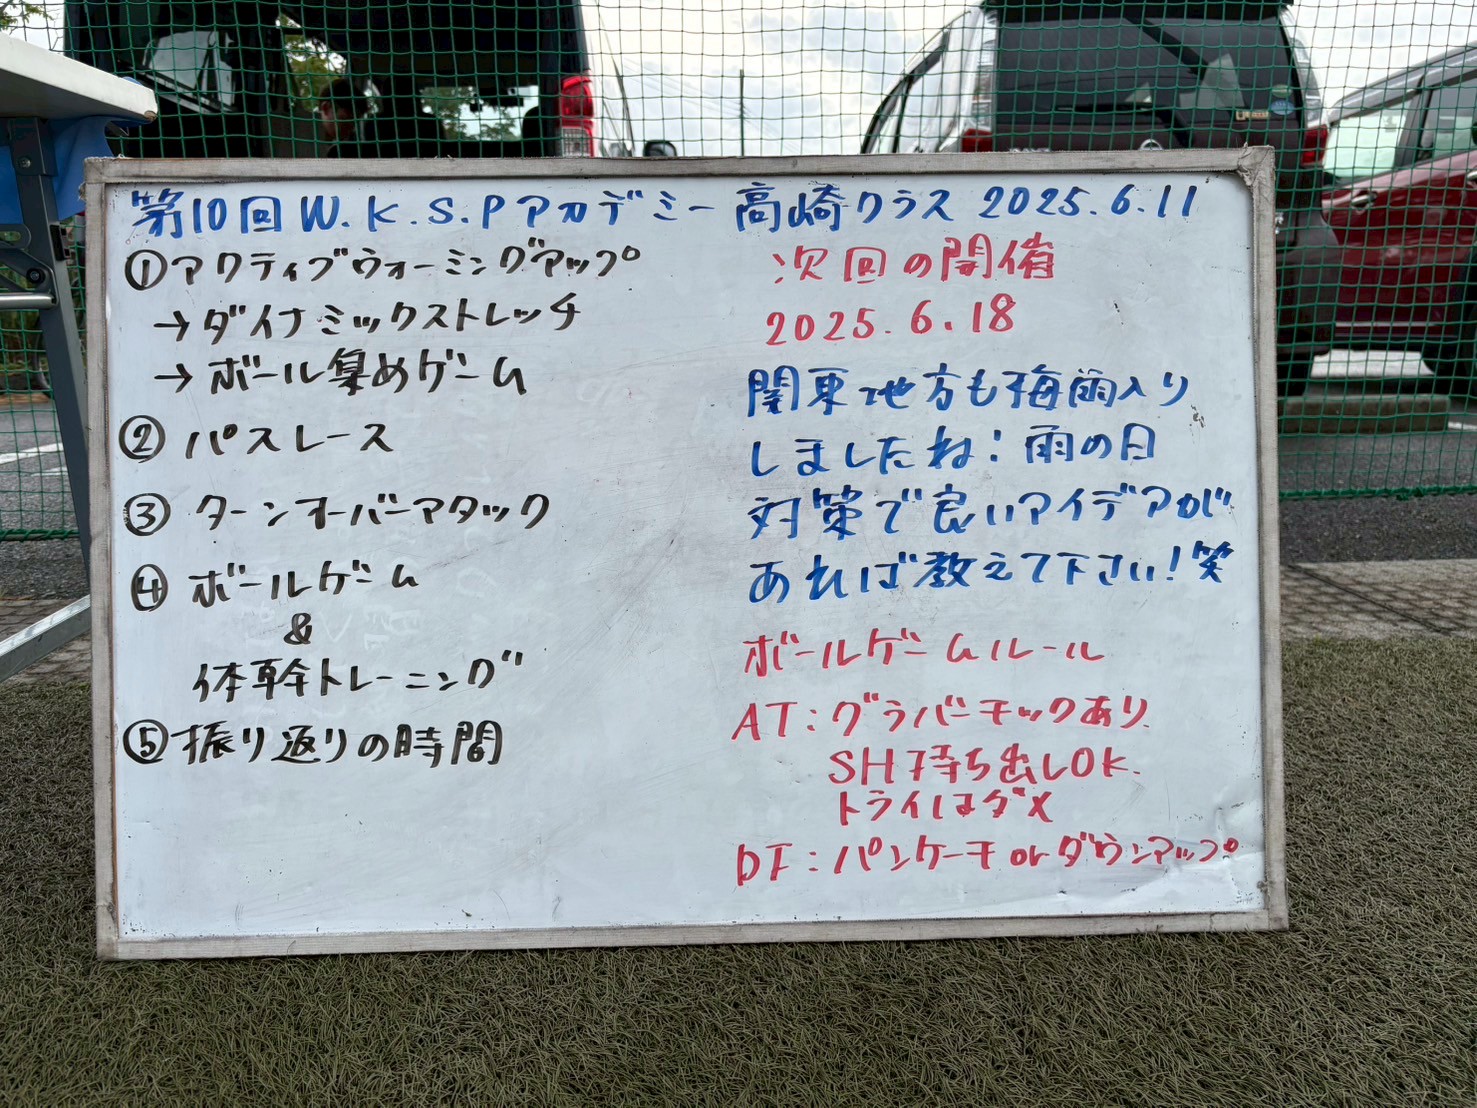 第10回 W.K.S.Pアカデミー 高崎クラス 2025.6.11
①アクティブウォーミングアップ
→ダイナミックストレッチ
→ボール集めゲーム
② パスレース
③ ターンオーバーアタック
④ ボールゲーム
&
体幹トレーニング
⑤振り返りの時間
次回の開催
2025.6.18
関東地方も梅雨入り
しましたね!雨の日
対策で良いアイデアが
あれば教えて下さい!笑
ボールゲームルール
AT:グラバーチックあり
SH持ち出しOK.
トライはダメ
DF:パンケーキorダウンアップ